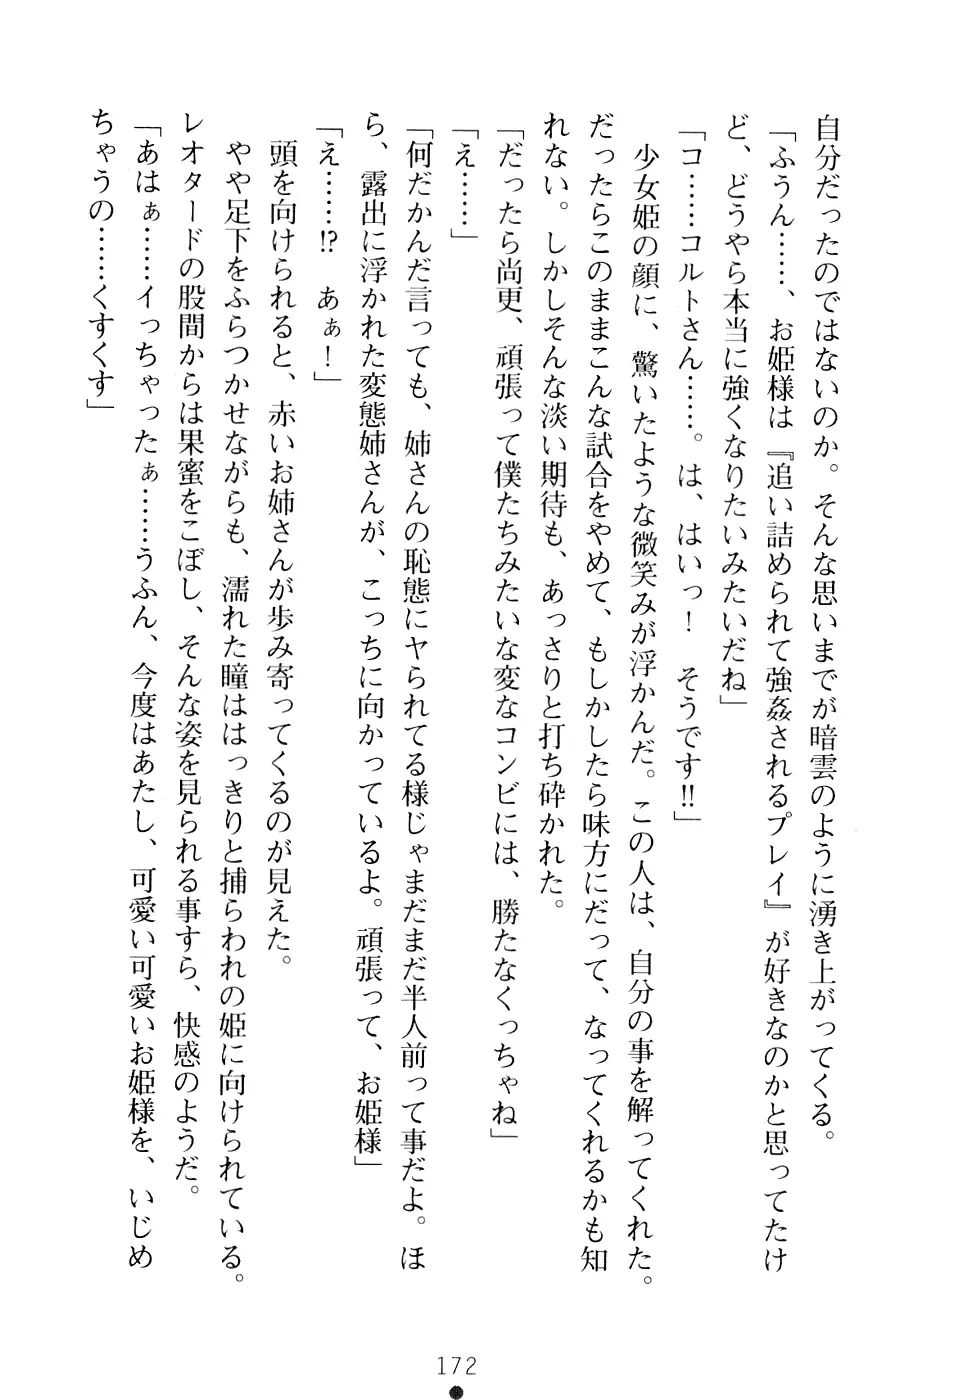 自分だったのではないのか。そんな思いまでが暗雲のように湧き上がってくる。
「ふうん……、お姫様は『追い詰められて強姦されるプレイ』が好きなのかと思ってたけ
ど、どうやら本当に強くなりたいみたいだね」
「コ……コルトさん……。は、はいっ！　そうです!!」
少女姫の顔に、驚いたような微笑みが浮かんだ。この人は、自分の事を解ってくれた。
だったらこのままこんな試合をやめて、もしかしたら味方にだって、なってくれるかも知
れない。しかしそんな淡い期待も、あっさりと打ち砕かれた。
「だったら尚更、頑張って僕たちみたいな変なコンビには、勝たなくっちゃね」
「え……」
「何だかんだ言っても、姉さんの恥態にヤられてる様じゃまだまだ半人前って事だよ。ほ
ら、露出に浮かれた変態姉さんが、こっちに向かっているよ。頑張って、お姫様」
「え……!?　あぁ！」
頭を向けられると、赤いお姉さんが歩み寄ってくるのが見えた。
やや足下をふらつかせながらも、濡れた瞳ははっきりと捕らわれの姫に向けられている。
レオタードの股間からは果蜜をこぼし、そんな姿を見られる事すら、快感のようだ。
「あはぁ……イっちゃったぁ……うふん、今度はあたし、可愛い可愛いお姫様を、いじめ
ちゃうの……くすくす」
172